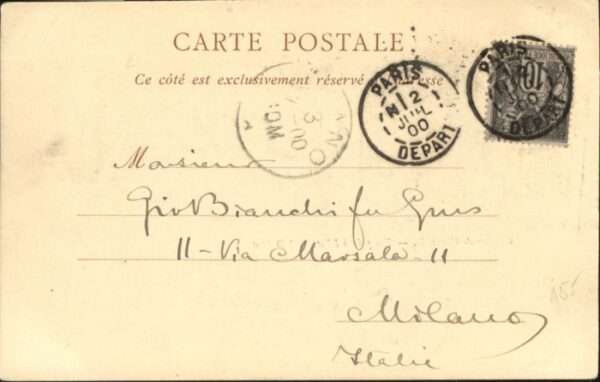 CARTE POSTALE
Ce côté est exclusivement réservé à l'adresse
PARIS
12
JUIL
00
DEPART
PARIS
10
00
DEPART
ANO
3
00
MOI
Monsieur
Gio Bianchi fu Gius
11 - Via Marsala - 11
Milano
Italie